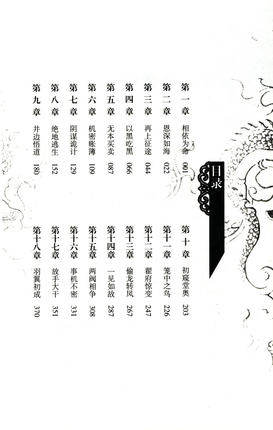 目录
第一章 相依为命 001
第二章 恩深如海 022
第三章 再上征途 044
第四章 以黑吃黑 066
第五章 无本买卖 087
第六章 机密账簿 109
第七章 阴谋诡计 129
第八章 绝地逃生 152
第九章 井边悟道 180
第十章 初窥堂奥 203
第十一章 笼中之鸟 226
第十二章 翟府惊变 247
第十三章 偷龙转凤 267
第十四章 一见如故 287
第十五章 两阀相争 308
第十六章 事机不密 331
第十七章 放手大干 351
第十八章 羽翼初成 370